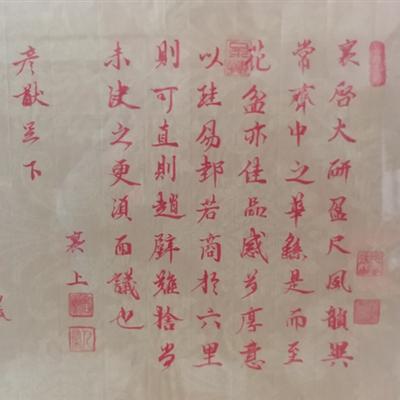 襄啓大研盈尺風韻異
常齋中之華繇是而至
花盆亦佳品感荷厚意
以珪易邽若商於六里
則可直則趙璧難捨尚
未決之更須面議也
襄上
彥猷足下